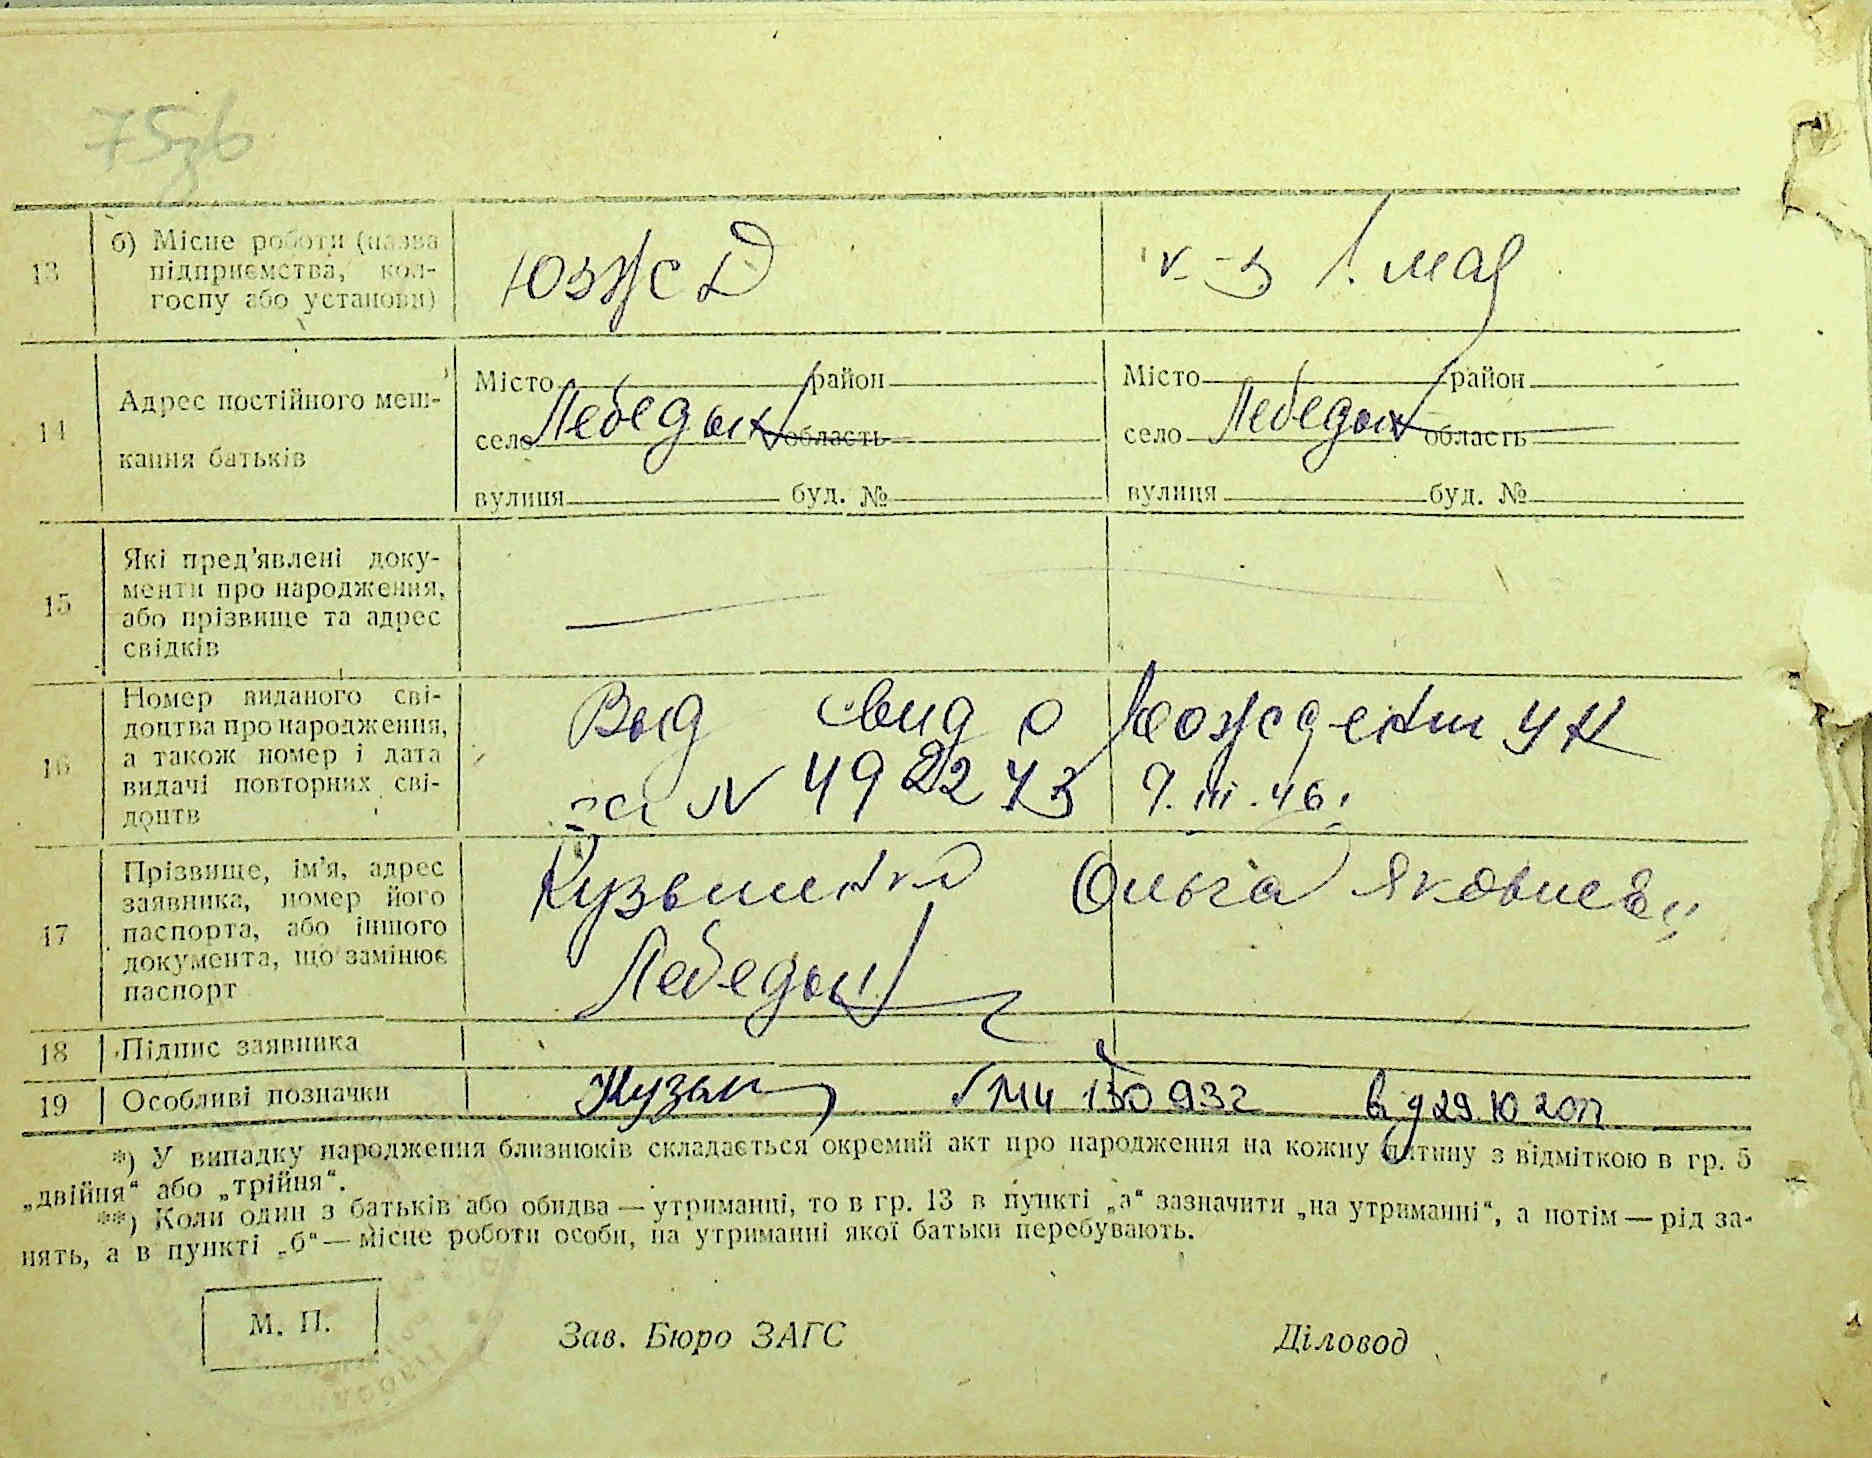 75зв
13
б) Місце роботи (назва
підприємства, кол-
госпу або установи)
ЮЗЖСД
к-з 1. мая
14
Адрес постійного меш-
кання батьків
Місто район
село Лебедын область
вулиця буд. №
Місто район
село Лебедын область
вулиця буд. №
15
Які пред'явлені доку-
менти про народження,
або прізвище та адрес
свідків
16
Номер виданого сві-
доцтва про народження,
а також номер і дата
видачі повторних сві-
доцтв
Выд свид о рождении УК
за N 492273 9.III.46.
17
Прізвище, ім'я, адрес
заявника, номер його
паспорта, або іншого
документа, що замінює
паспорт
Кузьменко Ольга Яковлев
Лебедын
18 Підпис заявника
19 Особливі позначки
Кузьм 130932 29.10 20
*) У випадку народження близнюків складається окремий акт про народження на кожну дитину з відміткою в гр. 5
„двійня“ або „трійня“.
**) Коли один з батьків або обидва — утриманці, то в гр. 13 в пункті „а“ зазначити „на утриманні“, а потім — рід за-
нять, а в пункті „б“ — місце роботи особи, на утриманні якої батьки перебувають.
М. П.
Зав. Бюро ЗАГС
Діловод